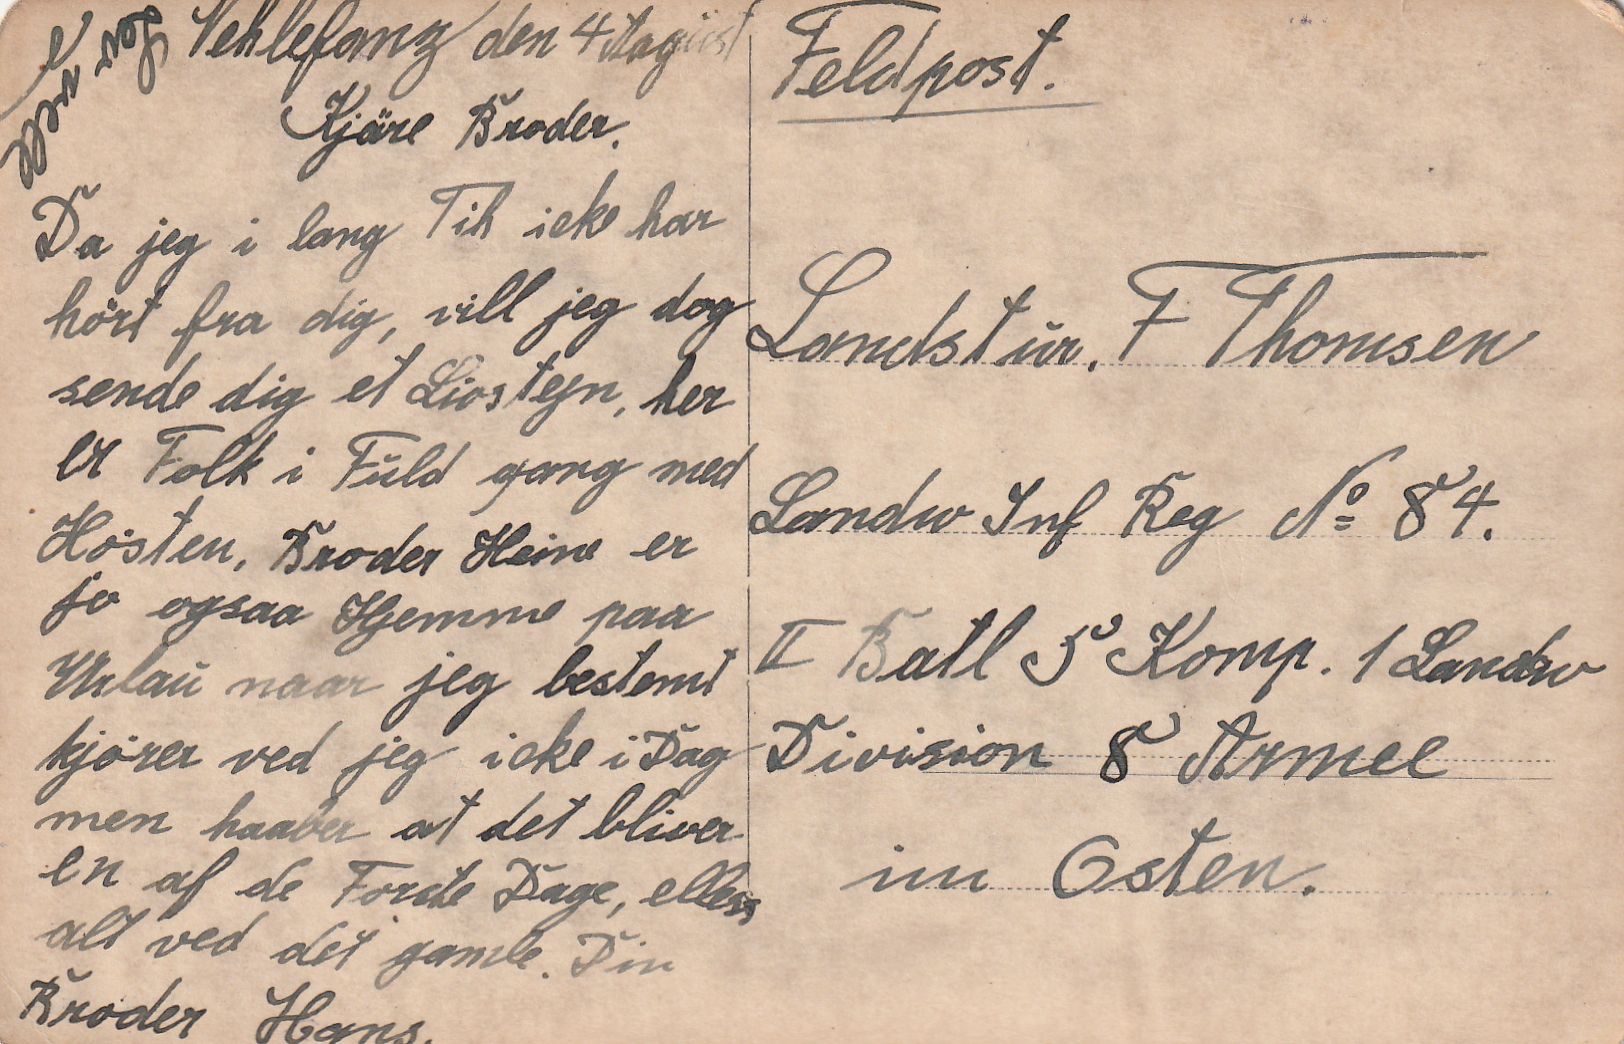 Vehlefanz den 4 August
Kjäre Broder.
Da jeg i lang Tih icke har
hört fra dig, vill jeg dog
sende dig et Livstegn, her
er Folk i Fuld gang med
Hösten, Broder Heine er
jo ogsaa Hjemme paa
Urlaŭ naar jeg bestemt
kjörer ved jeg icke i Dag
men haaber at det bliver
en af de Förste Dage, ellers
alt ved det gamle. Din
Broder Hans.
Far vell
Feldpost.
Landstŭr. F Thomsen
Landw Inf Reg No 84.
II Batl 5 Komp. 1 Landw
Division 8 Armee
im Osten.